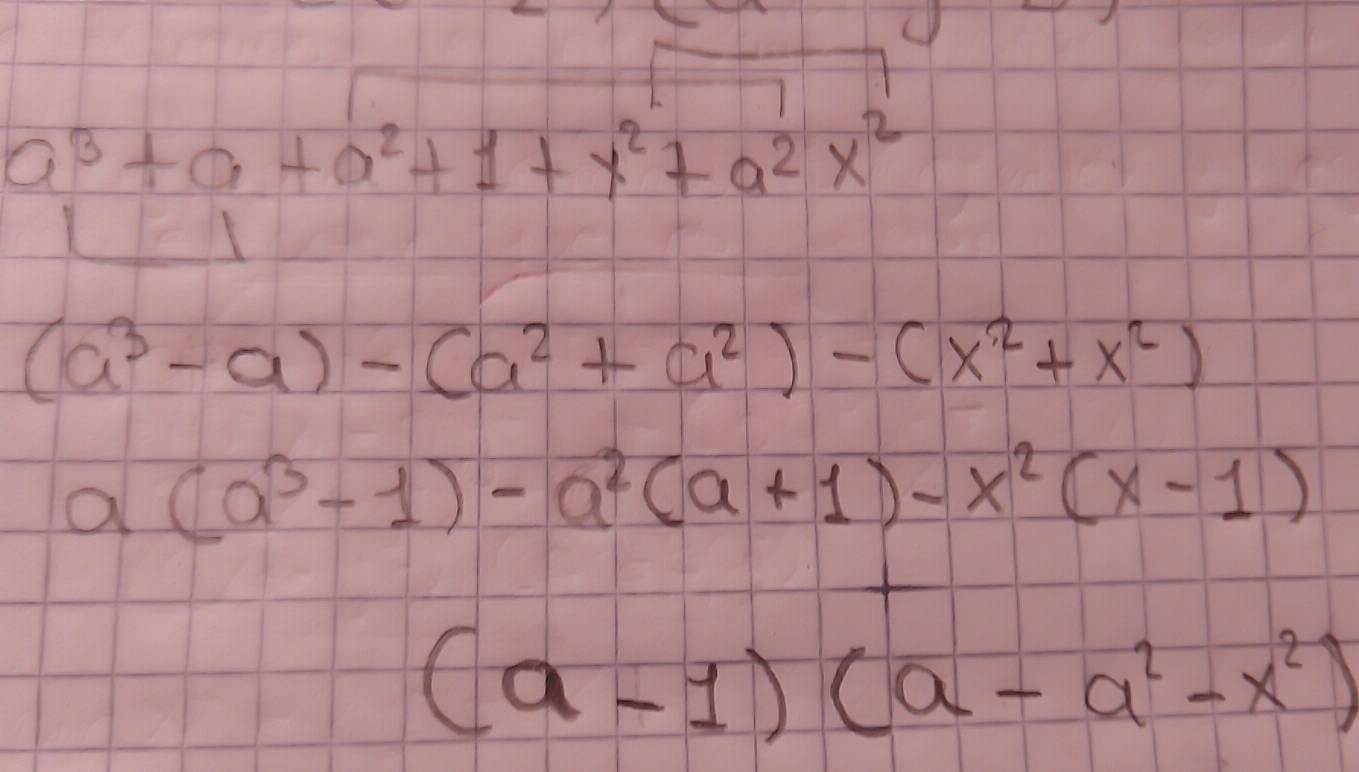 a³ + a + a² + 1 + x² + a² x²
(a³ - a) - (a² + a²) - (x² + x²)
a (a³ - 1) - a² (a + 1) - x² (x - 1)
(a - 1) (a - a² - x²)